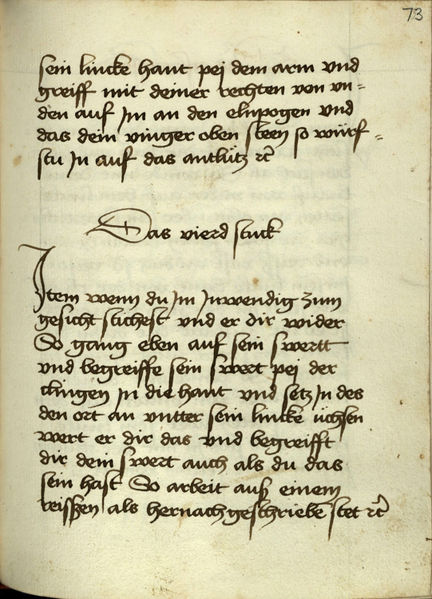 73
sein lincke hant pei dem arm vnd
greiff mit deiner rechten von vn=
den auf Im an den elnpogen vnd
das dein vinger oben steen so würf=
stu In auf das antlütz rc̃
Das vierd stuck
Item wenn du Im Inwendig zum
gesicht stichest vnd er dir wider
So gang eben auf sein swertt
vnd begreiffe sein swert pei der
clingen In die hant vnd setz In des
den ort an vntter sein lincke üchsen
wert er dir das vnd begreifft
dir dein swert auch als du das
sein hast So arbeit auß einem
reisszen als hernach geschriebe stet rc̃